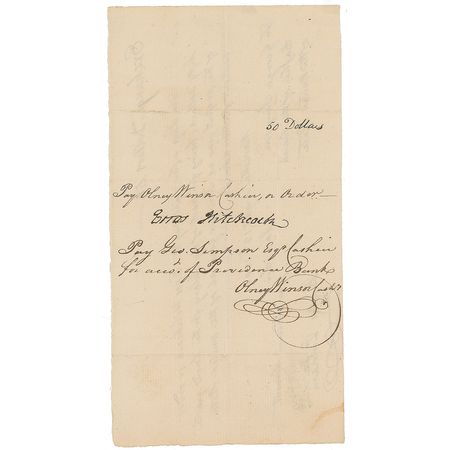 50 Dollars
Pay Olney Winsor Cashier, or Order
Enos Hitchcock
Pay Geo. Simpson Esqr. Cashier
for accot. of Providence Bank
Olney Winsor Cashr.